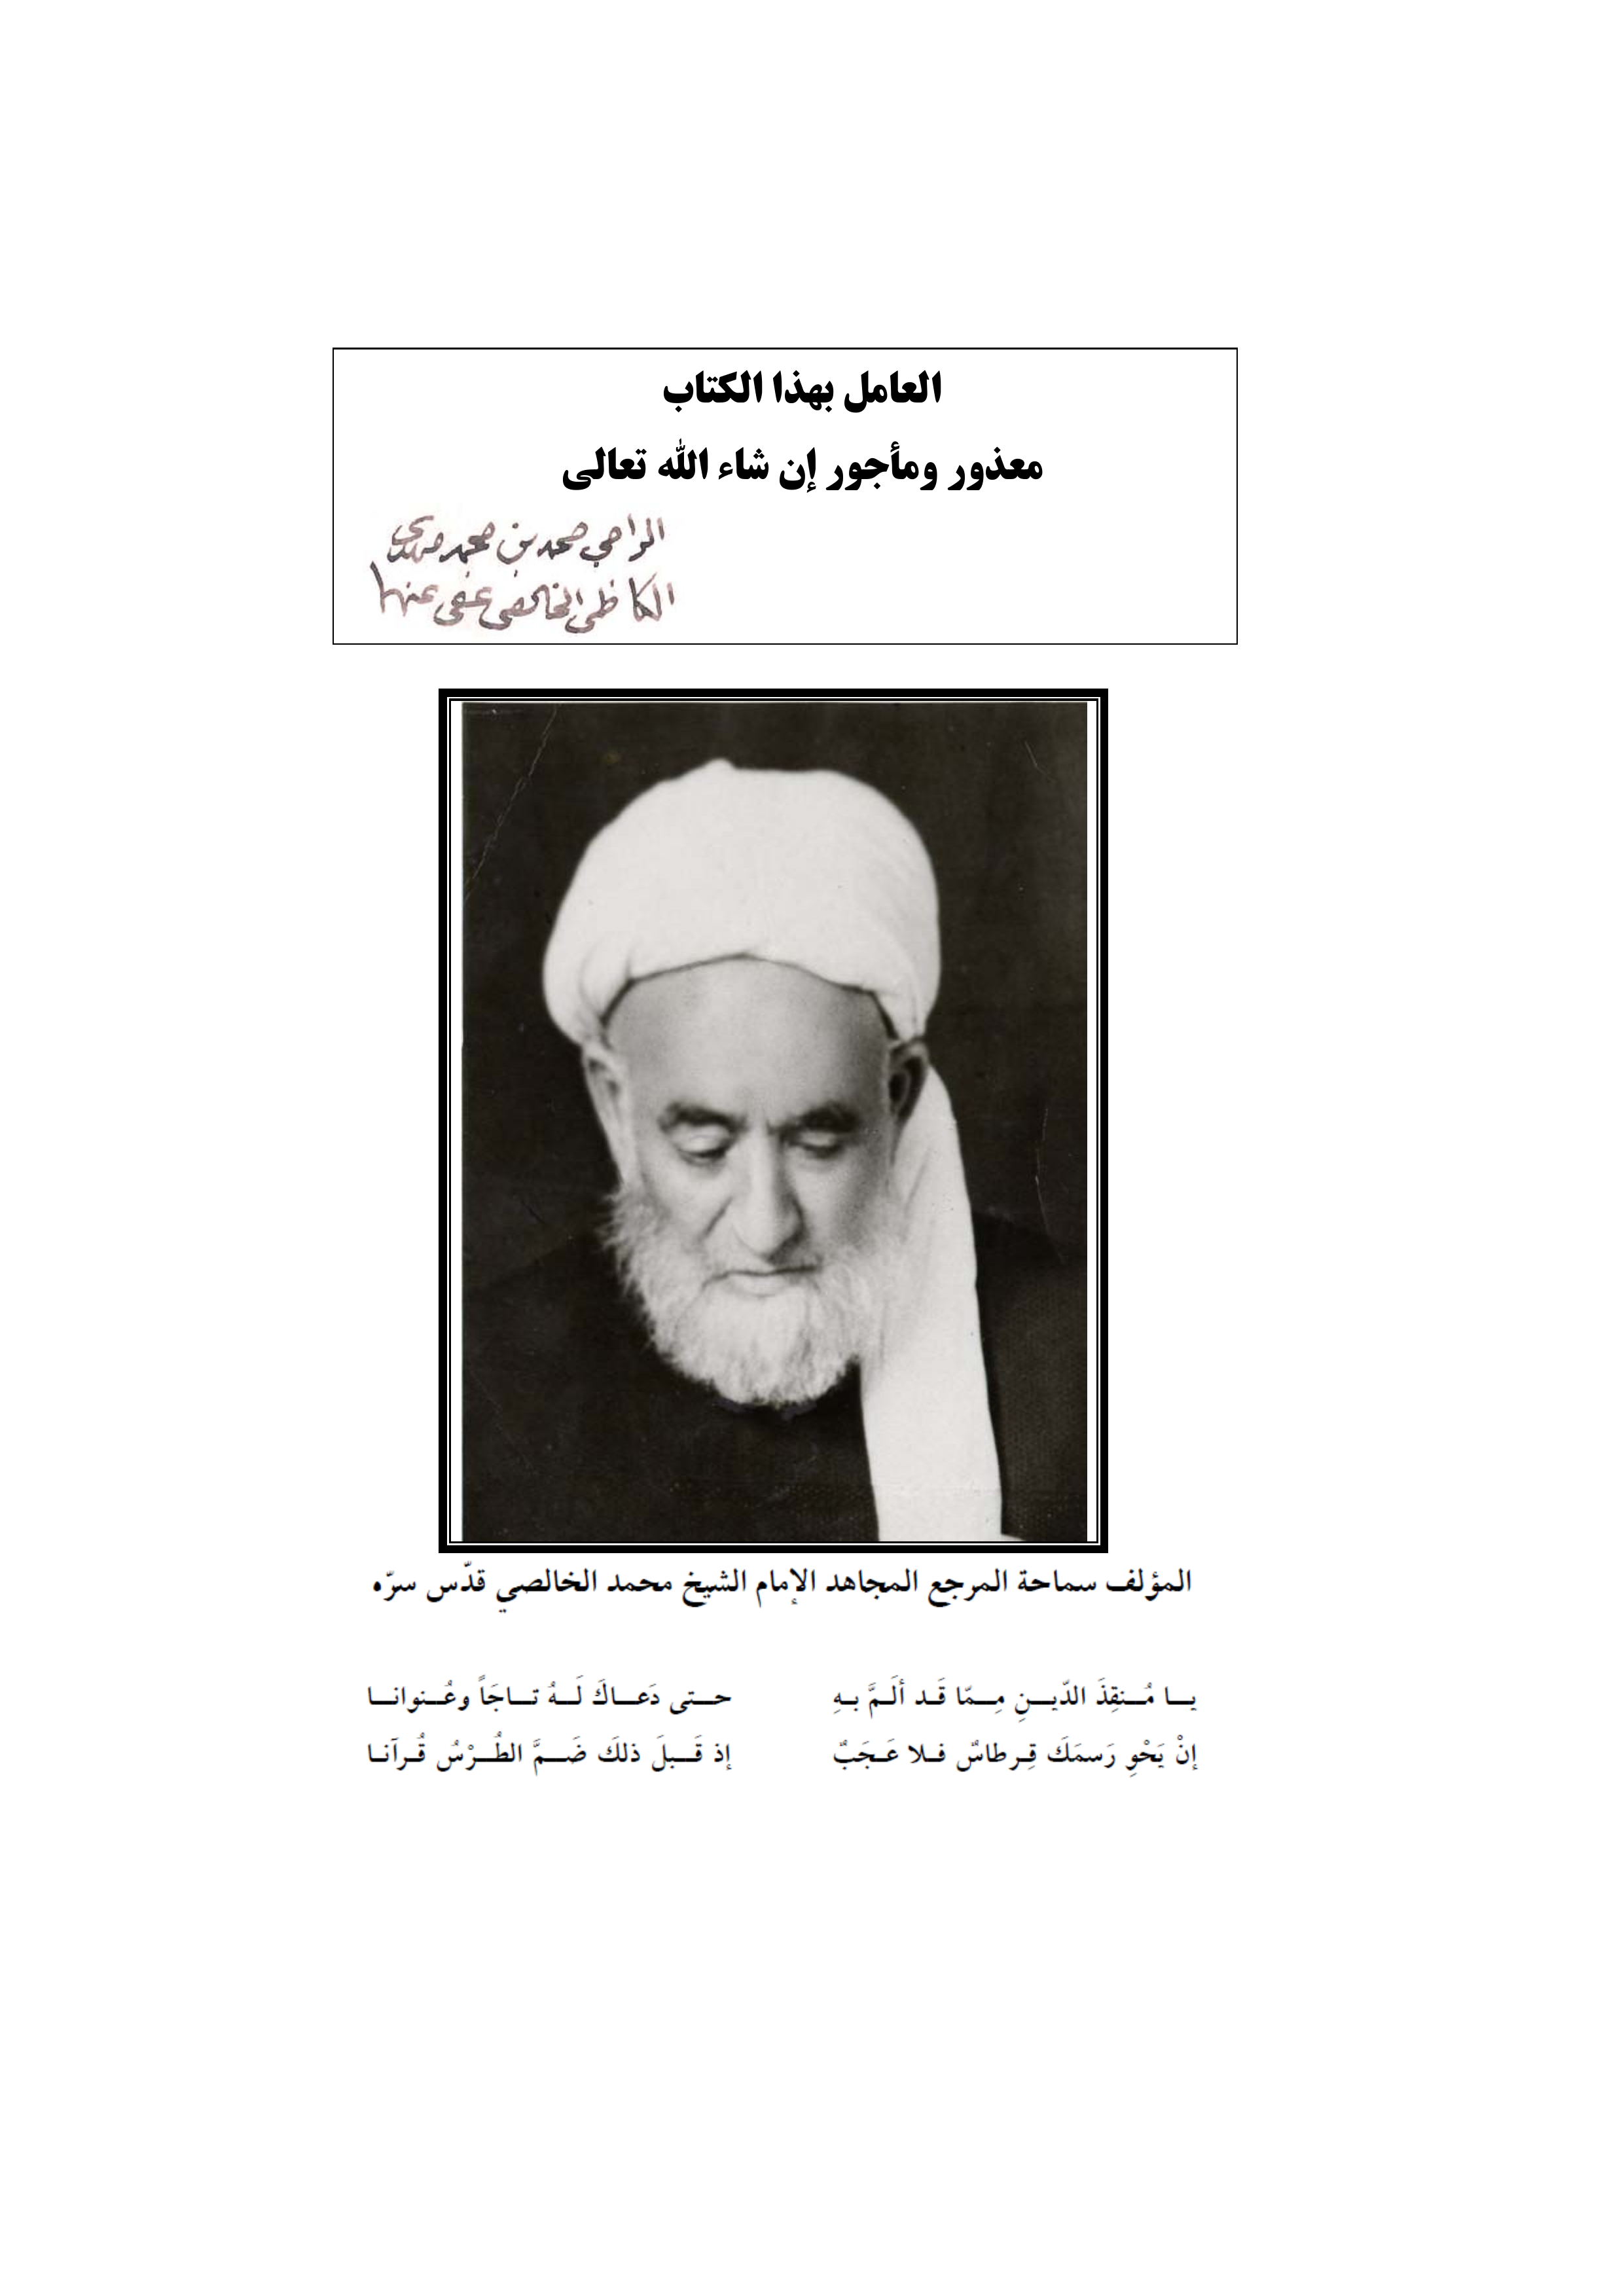 العامل بهذا الكتاب
معذور ومأجور إن شاء الله تعالى
الراجي محمد بن محمد مهدي
الكاظمي الخالصي عفي عنهما
المؤلف سماحة المرجع المجاهد الإمام الشيخ محمد الخالصي قدّس سرّه
يـــا مُـــنقِذَ الدّيـــنِ مِـــمّا قَـد ألَـمَّ بـهِ حـــتى دَعَـــاكَ لَـــهُ تـــاجَاً وعُـــنوانـــا
إنْ يَحْوِ رَسمَكَ قِـرطاسٌ فـلا عَـجَبٌ إذ قَـــبلَ ذلكَ ضَـــمَّ الطُـــرْسُ قُـرآنـا